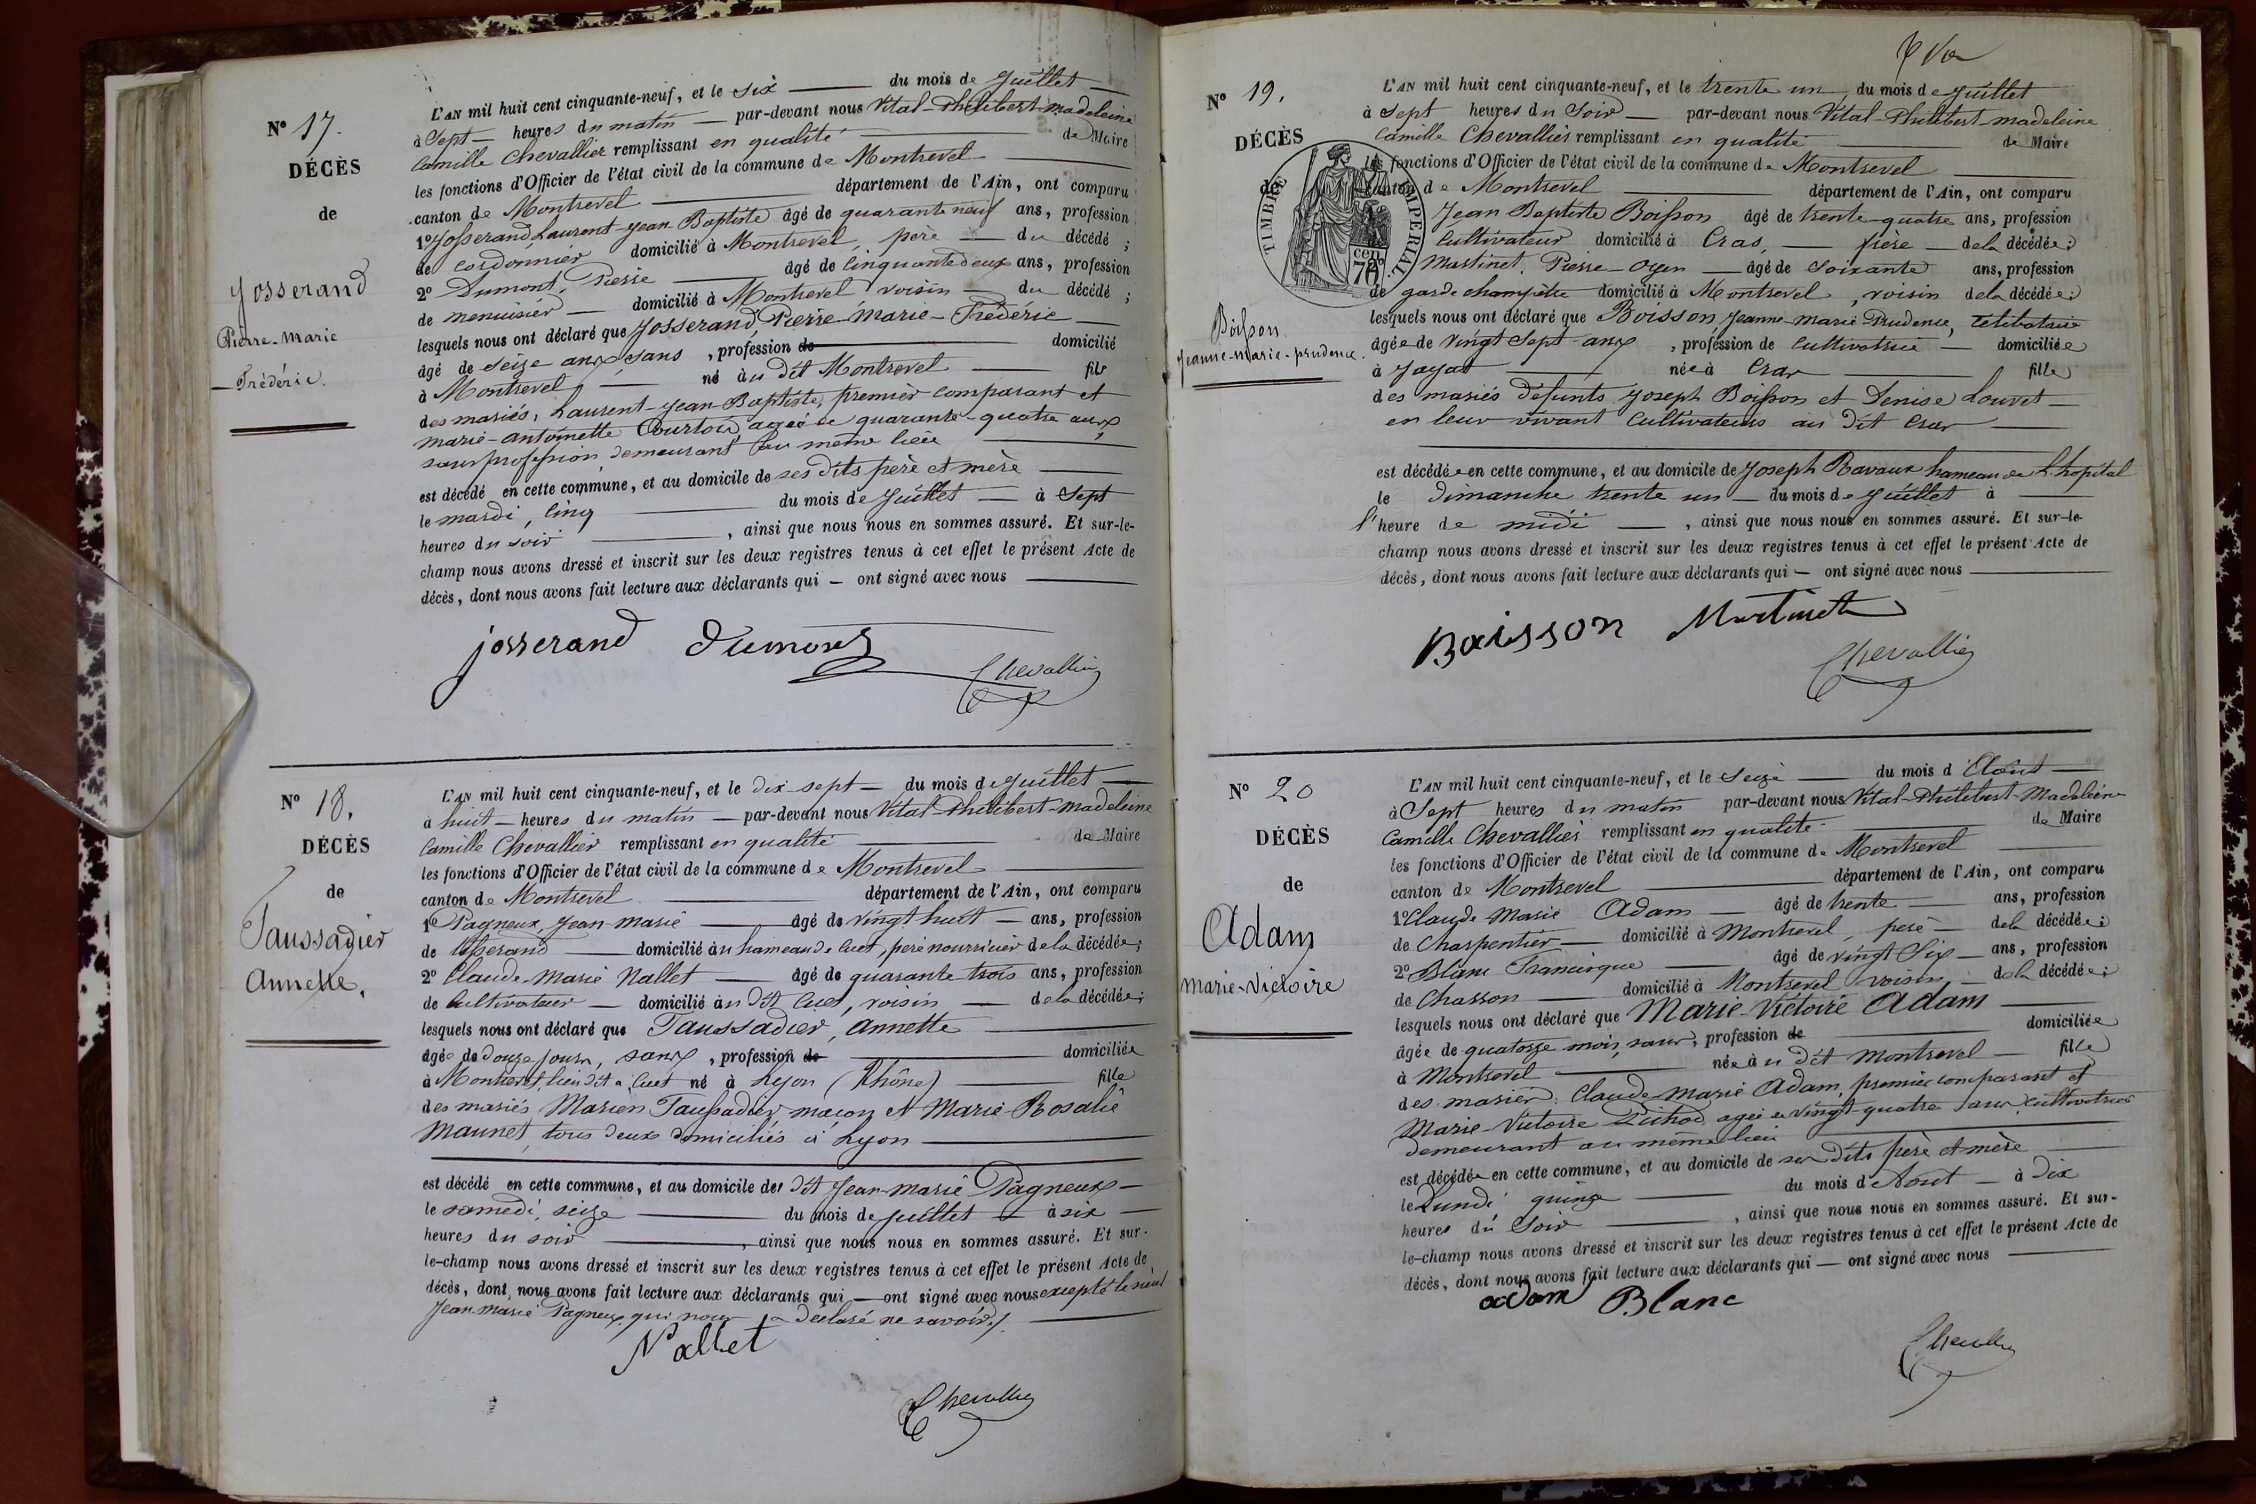 Nº 17.
DÉCÈS
de
Josserand
Pierre-Marie
Frédéric.
L'AN mil huit cent cinquante-neuf, et le six du mois de Juillet
à Sept heures du matin par-devant nous Vital-Philibert-Madeleine
Camille Chevallier remplissant en qualité de Maire
les fonctions d'Officier de l'état civil de la commune de Montrevel
canton de Montrevel département de l'Ain, ont comparu
1º Josserand Laurent-Jean Baptiste âgé de quarante neuf ans, profession
de cordonnier domicilié à Montrevel, père du décédé;
2º Dumont, Pierre âgé de cinquante deux ans, profession
de menuisier domicilié à Montrevel, voisin du décédé;
lesquels nous ont déclaré que Josserand, Pierre-Marie-Frédéric
âgé de seize ans, sans, profession de domicilié
à Montrevel, né au dit Montrevel fils
des mariés, Laurent-Jean-Baptiste, premier comparant et
Marie-Antoinette Courtois agée de quarante-quatre ans,
sans profession, demeurant au même lieu
est décédé en cette commune, et au domicile de ses dits père et mère
le mardi, cinq du mois de Juillet à Sept
heures du soir, ainsi que nous nous en sommes assuré. Et sur-le-
champ nous avons dressé et inscrit sur les deux registres tenus à cet effet le présent Acte de
décès, dont nous avons fait lecture aux déclarants qui — ont signé avec nous
josserand Dumont
Chevallier
Nº 18.
DÉCÈS
de
Taussadier
Annette.
L'AN mil huit cent cinquante-neuf, et le dix-sept du mois de Juillet
à huit heures du matin par-devant nous Vital-Philibert-Madeleine
Camille Chevallier remplissant en qualité de Maire
les fonctions d'Officier de l'état civil de la commune de Montrevel
canton de Montrevel département de l'Ain, ont comparu
1º Pagneux, Jean-Marie âgé de vingt huit ans, profession
de tisserand domicilié au hameau de Cuet, père nourricier de la décédée;
2º Claude-Marie Nallet âgé de quarante trois ans, profession
de Cultivateur domicilié au dit Cuet, voisin de la décédée;
lesquels nous ont déclaré que Taussadier, Annette
âgée de douze jours, sans, profession de domiciliée
à Montrevel, lieu dit à Cuet né à Lyon (Rhône) fille
des mariés Marien Taussadier, maçon et Marie-Rosalie
Maunet, tous deux domiciliés à Lyon
est décédé en cette commune, et au domicile du dit Jean-Marie Pagneux
le samedi, seize du mois de Juillet à six
heures du soir, ainsi que nous nous en sommes assuré. Et sur-
le-champ nous avons dressé et inscrit sur les deux registres tenus à cet effet le présent Acte de
décès, dont nous avons fait lecture aux déclarants qui — ont signé avec nous excepté le
Jean-Marie Pagneux qui nous a déclaré ne savoir.
Nallet
Chevallier
Nº 19.
DÉCÈS
de
Boisson
Jeanne-Marie-prudence.
TIMBRE IMPÉRIAL
L'AN mil huit cent cinquante-neuf, et le trente un, du mois de Juillet
à Sept heures du Soir par-devant nous Vital-Philibert-Madeleine
Camille Chevallier remplissant en qualité de Maire
les fonctions d'Officier de l'état civil de la commune de Montrevel
canton de Montrevel département de l'Ain, ont comparu
Jean Baptiste Boisson âgé de trente-quatre ans, profession
Cultivateur domicilié à Cras, frère de la décédée;
Martinet, Pierre-Oyen âgé de soixante ans, profession
de garde champêtre domicilié à Montrevel, voisin de la décédée;
lesquels nous ont déclaré que Boisson, Jeanne-Marie-Prudence, Célibataire
âgée de vingt sept ans, profession de Cultivatrice domiciliée
à Jayat née à Cras fille
des mariés défunts Joseph Boisson et Denise Louvet
en leur vivant Cultivateurs au dit Cras
est décédée en cette commune, et au domicile de Joseph Ravaux hameau de L'hôpital
le dimanche trente un du mois de Juillet à
l'heure de midi, ainsi que nous nous en sommes assuré. Et sur-le-
champ nous avons dressé et inscrit sur les deux registres tenus à cet effet le présent Acte de
décès, dont nous avons fait lecture aux déclarants qui — ont signé avec nous
Baisson Martinet
Chevallier
Nº 20
DÉCÈS
de
Adam
Marie-Victoire
L'AN mil huit cent cinquante-neuf, et le Seize du mois d'Août
à Sept heures du matin par-devant nous Vital-Philibert-Madeleine
Camille Chevallier remplissant en qualité de Maire
les fonctions d'Officier de l'état civil de la commune de Montrevel
canton de Montrevel département de l'Ain, ont comparu
1º Claude Marie Adam âgé de trente ans, profession
de Charpentier domicilié à Montrevel, père de la décédée;
2º Blanc Francisque âgé de vingt Six ans, profession
de Charron domicilié à Montrevel voisin de la décédée;
lesquels nous ont déclaré que Marie-Victoire Adam
âgée de quatorze mois, sans, profession de domiciliée
à Montrevel née au dit Montrevel fille
des mariés: Claude Marie Adam, premier comparant et
Marie-Victoire agée de vingt-quatre ans cultivatrice
demeurant au même lieu
est décédée en cette commune, et au domicile de ses dits père et mère
le Lundi quinze du mois d'Août à dix
heures du Soir, ainsi que nous nous en sommes assuré. Et sur-
le-champ nous avons dressé et inscrit sur les deux registres tenus à cet effet le présent Acte de
décès, dont nous avons fait lecture aux déclarants qui — ont signé avec nous
adam Blanc
Chevallier